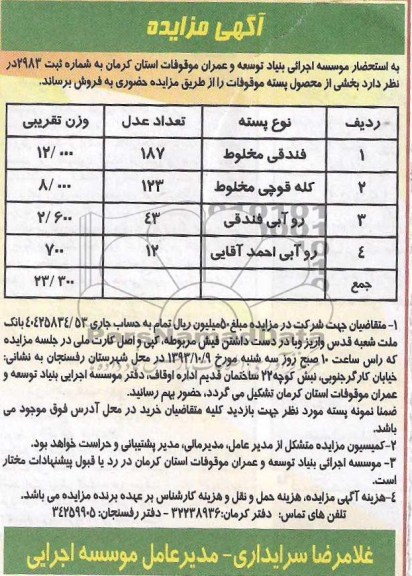 آگهی مزایده
به استحضار موسسه اجرائی بنیاد توسعه و عمران موقوفات استان کرمان به شماره ثبت ۲۹۸۳در
نظر دارد بخشی از محصول پسته موقوفات را از طریق مزایده حضوری به فروش برساند.
ردیف نوع پسته تعداد عدل وزن تقریبی
۱ فندقی مخلوط ۱۸۷ ۱۲/۰۰۰
۲ کله قوچی مخلوط ۱۲۳ ۸/۰۰۰
۳ رو آبی فندقی ۴۳ ۲/۶۰۰
۴ رو آبی احمد آقایی ۱۲ ۷۰۰
جمع ۲۳/۳۰۰
۱- متقاضیان جهت شرکت در مزایده مبلغ ۵۰میلیون ریال تمام به حساب جاری ۴۰۴۲۵۸۳۴/۵۳ بانک
ملت شعبه قدس واریز وبا در دست داشتن فیش مربوطه، کپی و اصل کارت ملی در جلسه مزایده
که راس ساعت ۱۰ صبح روز سه شنبه مورخ ۱۳۹۳/۱۰/۹ در محل شهرستان رفسنجان به نشانی:
خیابان کارگرجنوبی، نبش کوچه۲۲ ساختمان قدیم اداره اوقاف، دفتر موسسه اجرایی بنیاد توسعه و
عمران موقوفات استان کرمان تشکیل می گردد، حضور بهم رسانید.
ضمنا نمونه پسته مورد نظر جهت بازدید کلیه متقاضیان خرید در محل آدرس فوق موجود می
باشد.
۲-کمیسیون مزایده متشکل از مدیر عامل، مدیرمالی، مدیر پشتیبانی و حراست خواهد بود.
۳- موسسه اجرائی بنیاد توسعه و عمران موقوفات استان کرمان در رد یا قبول پیشنهادات مختار
است.
۴-هزینه آگهی مزایده، هزینه حمل و نقل و هزینه کارشناس بر عهده برنده مزایده می باشد.
تلفن های تماس: دفتر کرمان:۳۲۲۳۸۹۳۶ - دفتر رفسنجان: ۳۴۲۵۹۹۰۵
غلامرضا سرایداری- مدیرعامل موسسه اجرایی